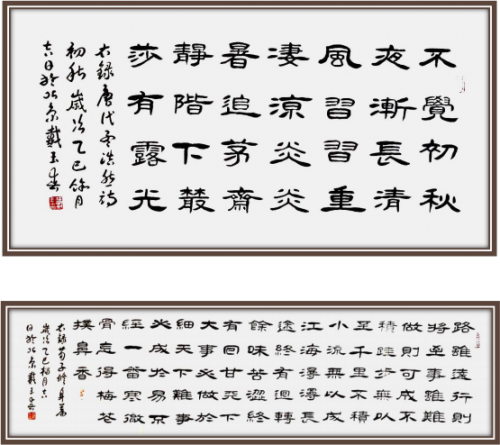 不覺初秋
夜漸長清
風習習重
淒涼炎炎
暑退茅齋
靜階下叢
莎有露光
右錄唐代孟浩然詩
初秋 歲次乙巳餘月
吉日於北京戴玉
路雖遠行則
將至事雖難
做則可成不
積跬步無以
至千里不積
小流無以成
江海漫漫長
途終有迴轉
餘味苦澀終
有回甘天下
大事必做於
細天下難事
必成於易不
經一番寒徹
骨怎得梅花
撲鼻香
右錄荀子修身篇
歲次乙巳月吉
日於北京戴玉